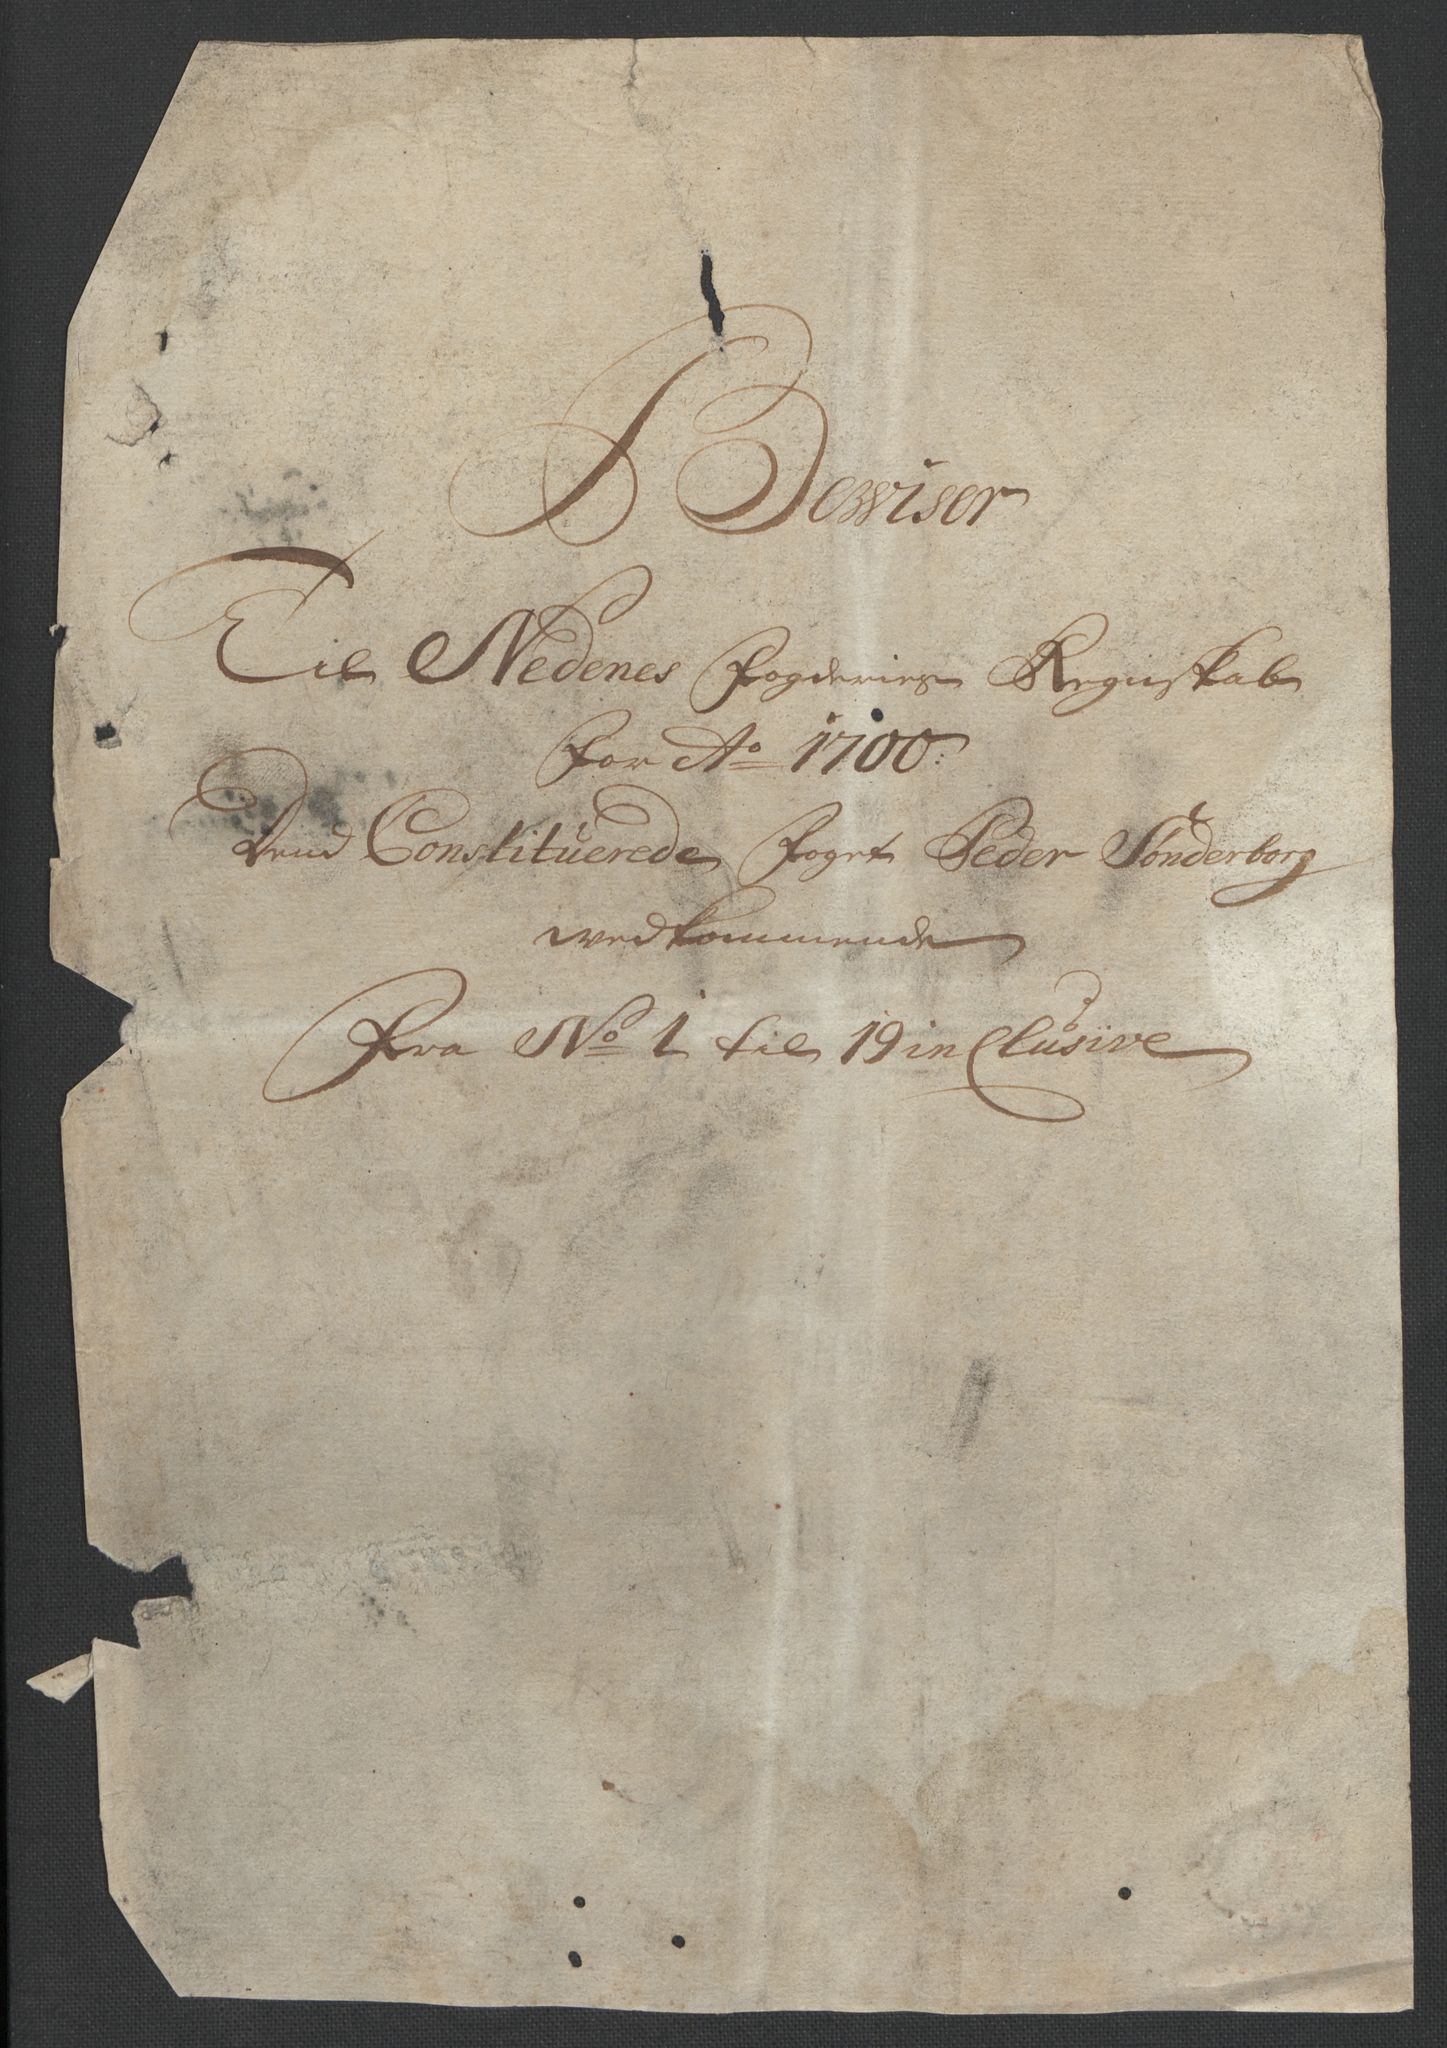 Bewiser
Til Nedenes fogderies Regnskab
for Ao 1700.
Dend Constituerede foget Peder Sönderborg
wedkommende
Fra No 1 til 19 inClusive